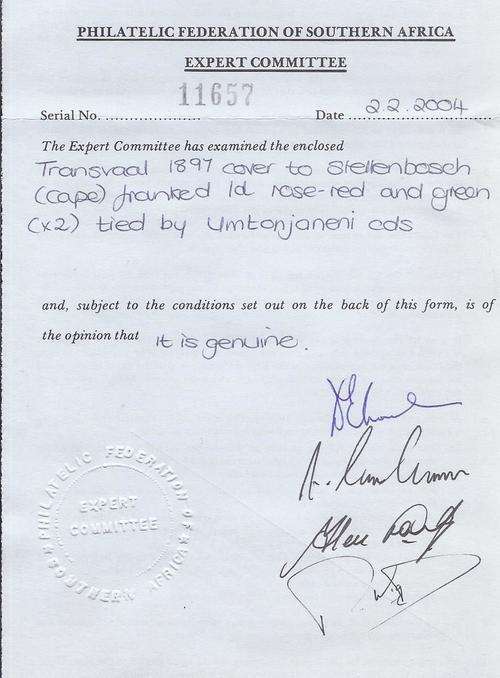 PHILATELIC FEDERATION OF SOUTHERN AFRICA
EXPERT COMMITTEE
Serial No. 11657 Date 2.2.2004
The Expert Committee has examined the enclosed
Transvaal 1897 cover to Stellenbosch
(Cape) franked 1d rose-red and green
(x2) tied by Umtonjaneni cds
and, subject to the conditions set out on the back of this form, is of
the opinion that it is genuine.
PHILATELIC FEDERATION OF
SOUTHERN AFRICA
EXPERT
COMMITTEE